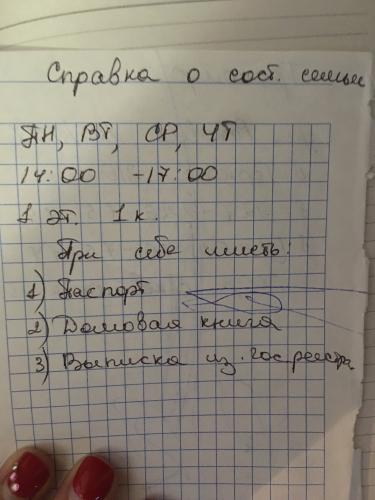 Справка о сост. семьи
ПН, ВТ, СР, ЧТ
14:00 -17:00
1 эт. 1 к.
При себе иметь:
1) Паспорт
2) Домовая книга
3) Выписка из. гос реестра